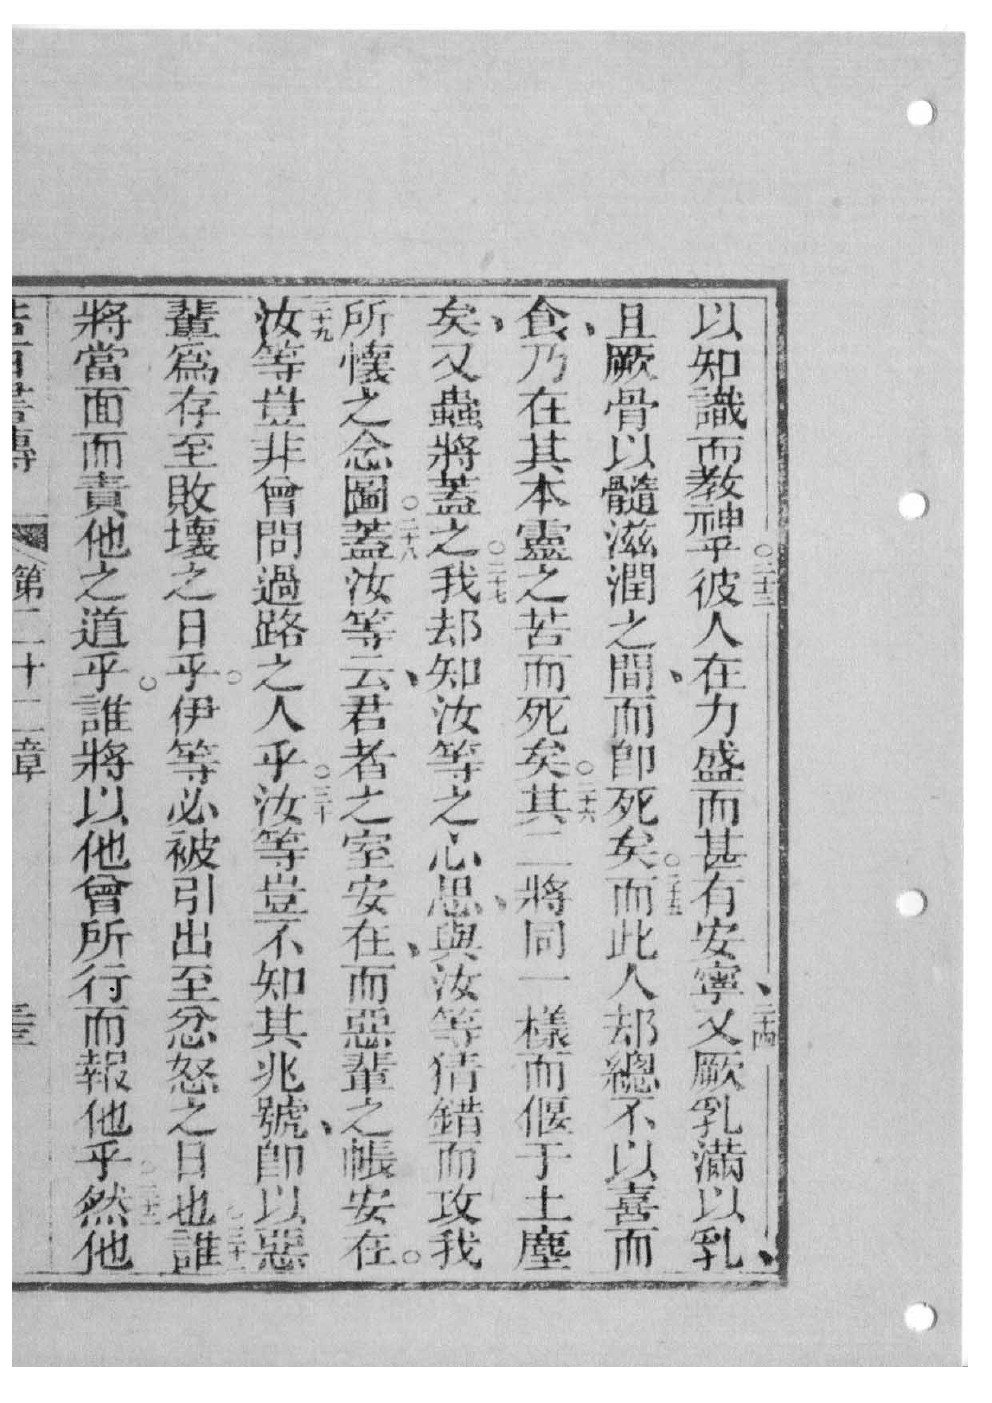 以知識而教神乎○二十三彼人在力盛而甚有安寧、二十四又厥乳滿以乳、
且厥骨以髓滋潤之間、而卽死矣○二十五而此人却總不以喜而
食、乃在其本靈之苦而死矣○二十六其二將同一樣而偃于土塵
矣、又蟲將蓋之○二十七我却知汝等之心思、與汝等猜錯而攻我
所懷之念圖○二十八蓋汝等云、君者之室安在、而惡輩之帳安在○
二十九汝等豈非曾問過路之人乎○三十汝等豈不知其兆號、卽以惡
輩爲存至敗壞之日乎○伊等必被引出至忿怒之日也○三十一誰
將當面而責他之道乎○誰將以他曾所行而報他乎○三十二然他
若百書傳 第二十一章